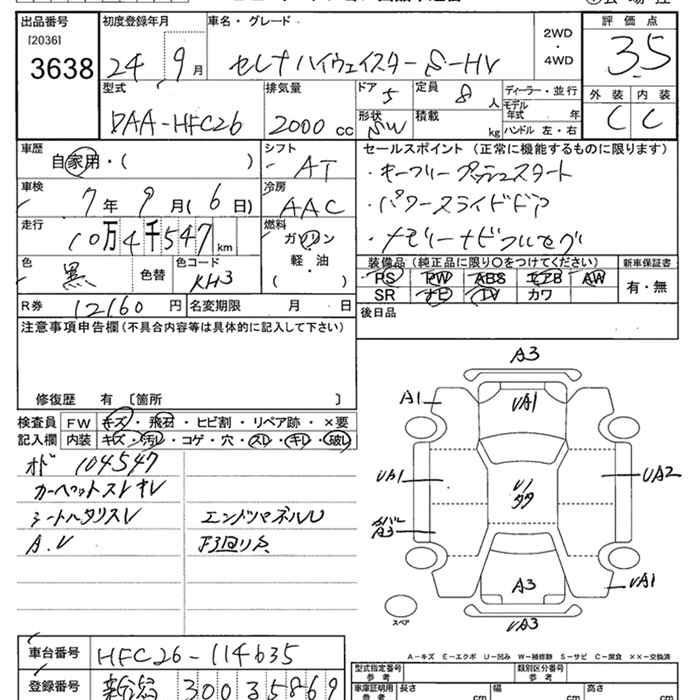 出品番号 初度登録年月 車名・グレード 2WD・4WD 評価点
[2036]
3638 24 9月 セレナハイウェイスター S-HV 3.5
型式 排気量 ドア 5 定員 8人 ディーラー・並行 外装 内装
DAA-HFC26 2000cc 形状 SW 積載 kg モデル年式 年 C C
ハンドル 左・右
車歴 自家用・( ) シフト AT セールスポイント (正常に機能するものに限ります)
・キーフリープッシュスタート
車検 7年9月(6日) 冷房 AAC ・パワースライドドア
走行 10万4千547km 燃料 ガソリン ・メモリーナビフルセグ
軽・油
( )
色 黒 色替 色コード KH3 装備品 (純正品に限り○をつけてください) 新車保証書
PS PW ABS エアB AW 有・無
SR ナビ TV カワ
R券 12160円 名変期限 月 日 後日品
注意事項申告欄 (不具合内容等は具体的に記入して下さい)
修復歴 有 〔箇所 〕
検査員 FW キズ・飛石・ヒビ割・リペア跡・×要
記入欄 内装 キズ・汚レ・コゲ・穴・スレ・キレ・破レ
オド 104547
カーペットスレキレ
シートヘタリスレ エンドパネルU
A.V
A3
A1 UA1
UA1 UA2
A3
A3 UA1
UA3
スペア
A－キズ E－エクボ U－凹み W－補修跡 S－サビ C－腐食 ××－交換済
車台番号 HFC26-114635 型式指定番号 参考 類別区分番号 参考
登録番号 300 35869 車庫証明用 参考 長さ cm 幅 cm 高さ cm